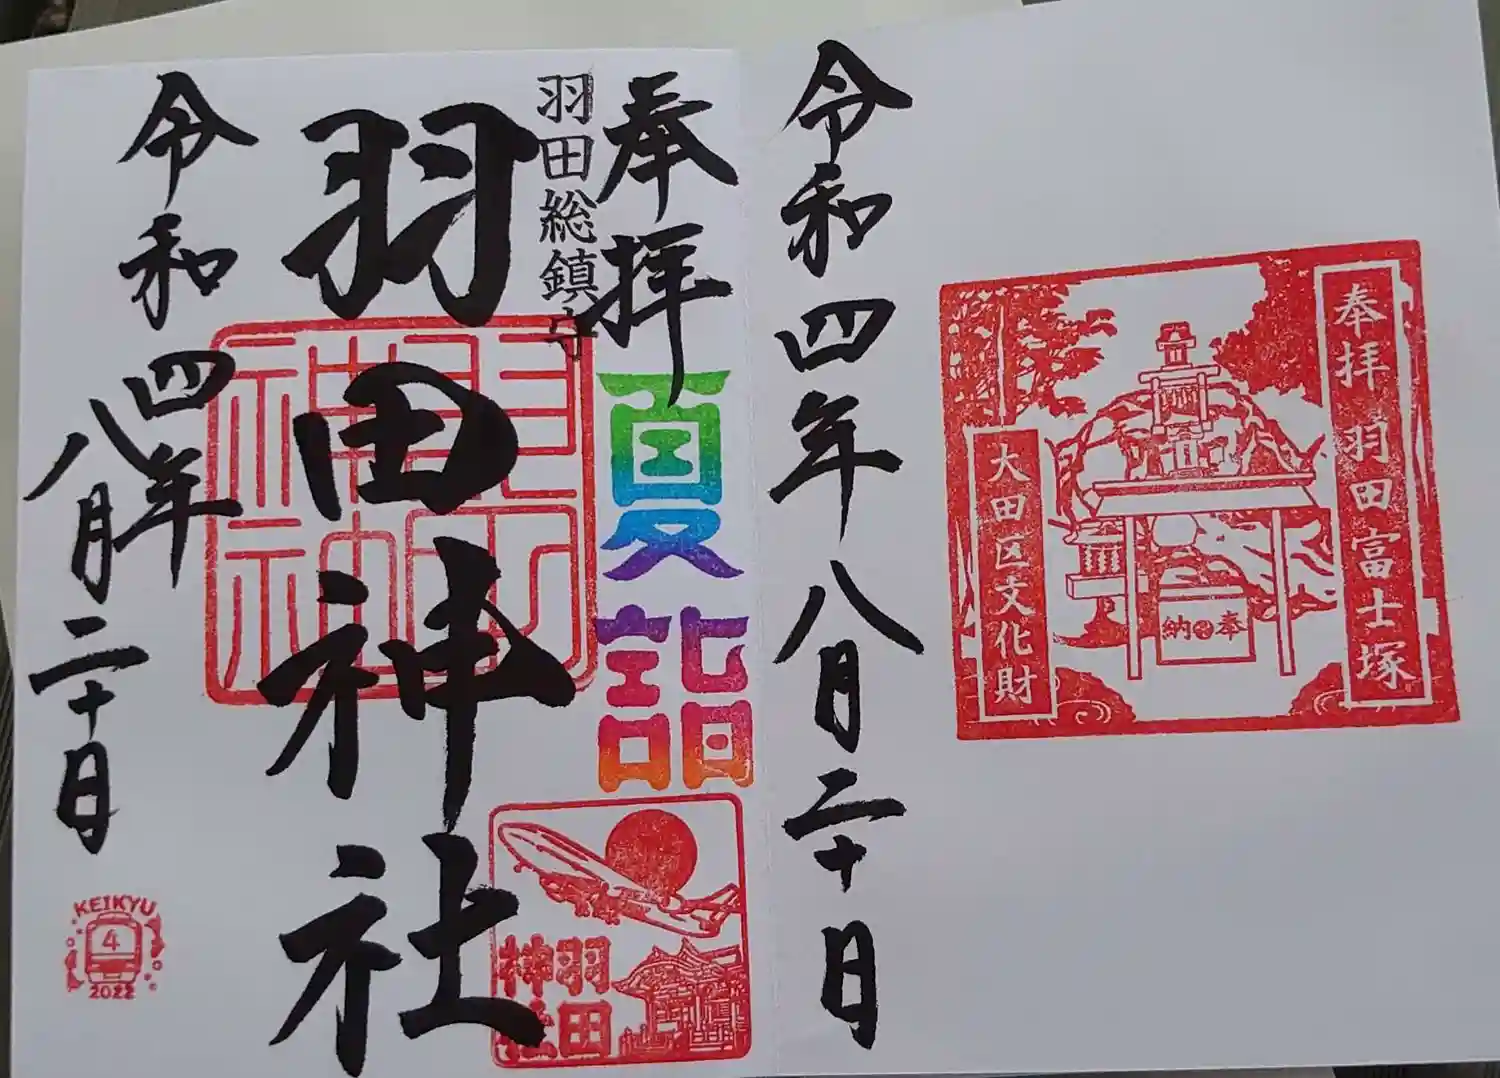 奉拝 羽田富士塚
大田区文化財
奉納
令和四年八月二十日
奉拝
夏詣
羽田総鎮守
羽田神社
羽田神社
令和四年八月二十日
KEIKYU
4
2022